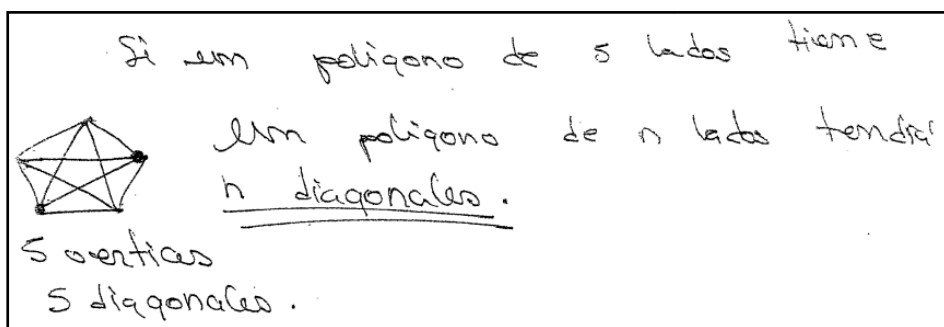 Si un poligono de 5 lados tiene
un poligono de n lados tendrá
n diagonales.
5 vertices
5 diagonales.